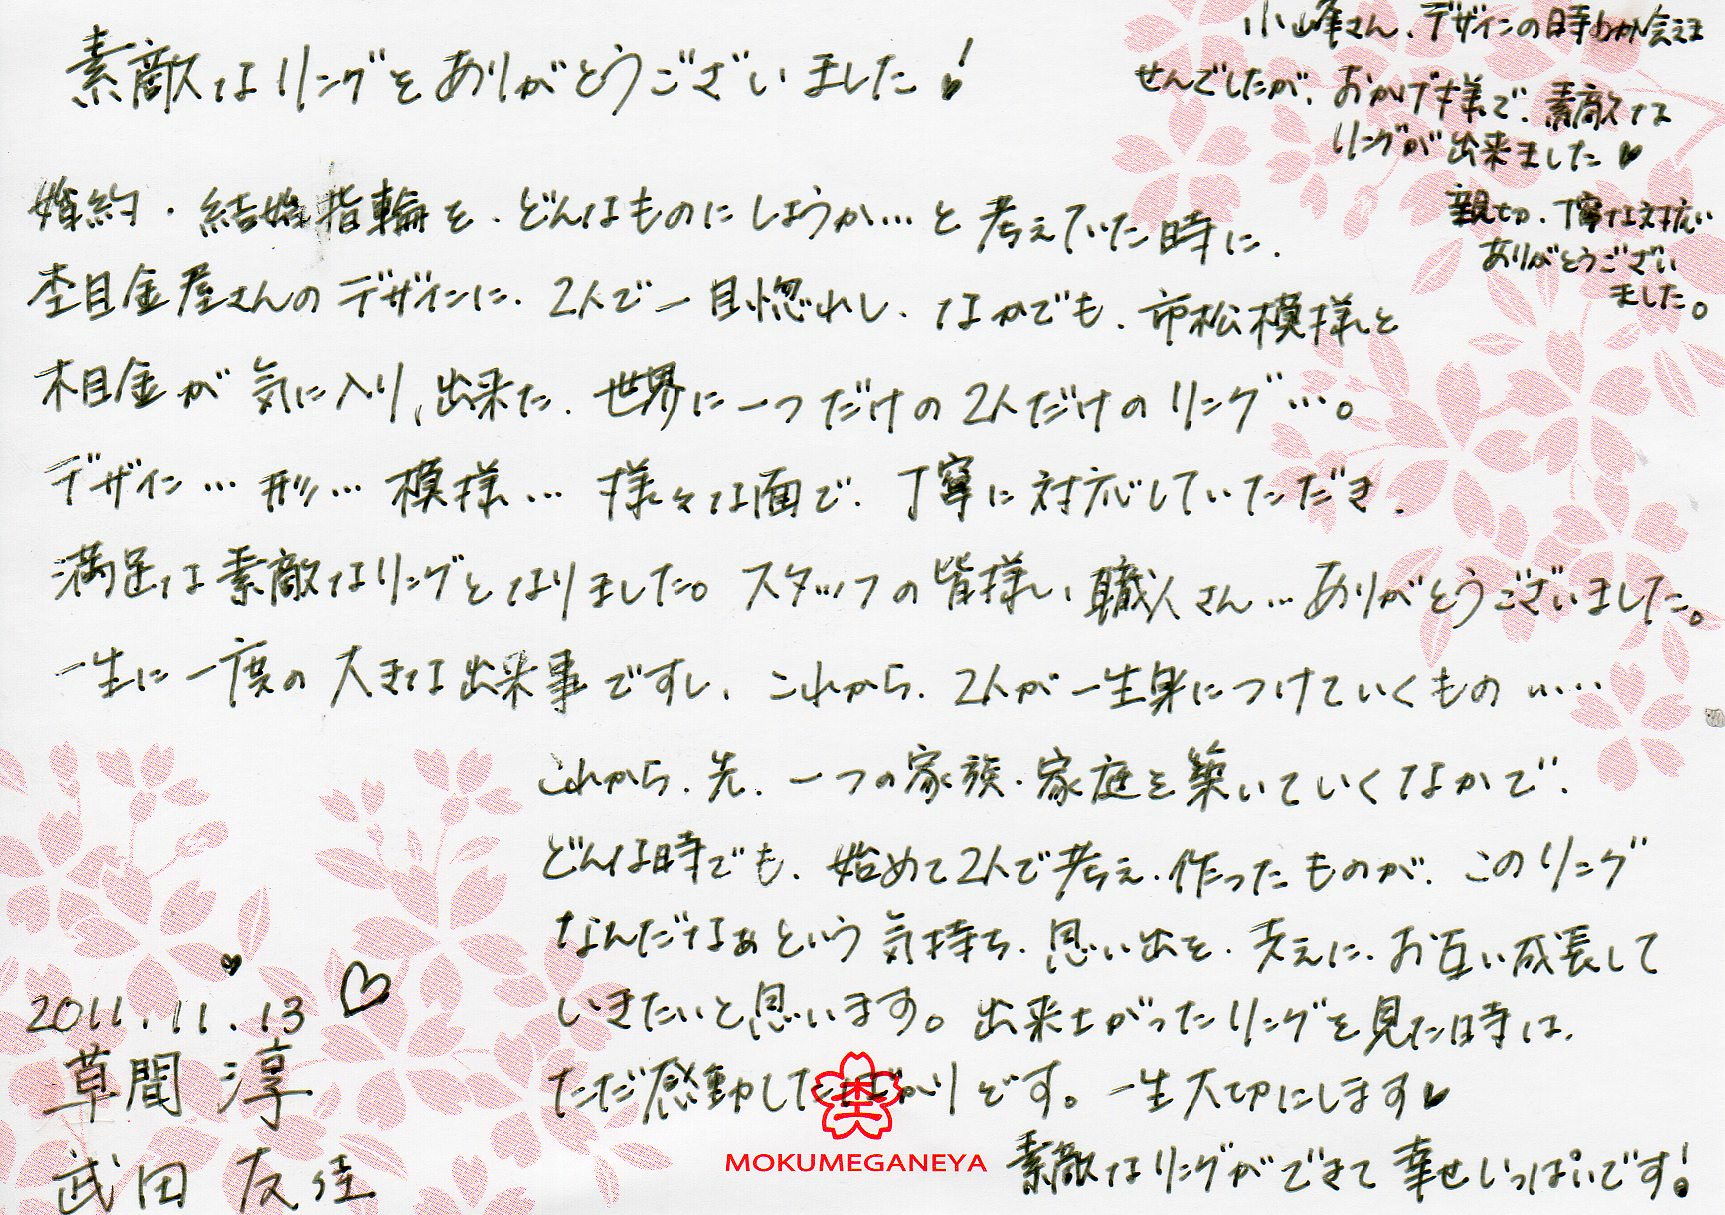 素敵なリングをありがとうございました!
婚約・結婚指輪を、どんなものにしようか…と考えていた時に、
杢目金屋さんのデザインに、2人で一目惚れし、なかでも、市松模様と
木目金が気に入り、出来た、世界に一つだけの2人だけのリング…。
デザイン…形…模様…様々な面で、丁寧に対応していただき、
満足な素敵なリングとなりました。スタッフの皆様、職人さん…ありがとうございました。
一生に一度の大きな出来事ですし、これから、2人が一生身につけていくもの……
これから、先、一つの家族・家庭を築いていくなかで、
どんな時でも、始めて2人で考え、作ったものが、このリング
なんだなぁという気持ち、思い出を、支えに、お互い成長して
いきたいと思います。出来上がったリングを見た時は、
ただ感動したばかりです。一生大切にします♥
素敵なリングができて幸せいっぱいです!
小峰さん、デザインの時しか会えま
せんでしたが、おかげ様で、素敵な
リングが出来ました♥
親切、丁寧な対応
ありがとうござい
ました。
2011.11.13
草間 淳
武田 友佳
杢
MOKUMEGANEYA